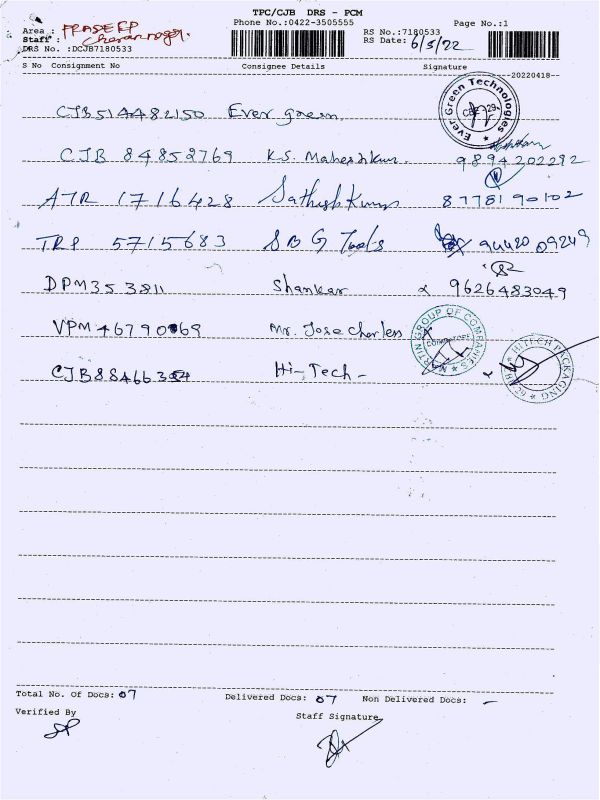 TPC/CJB DRS - PCM
Phone No.:0422-3505555 Page No.:1
Area : PRADEEP
Staff : Cheran nagar.
RS No.:7180533
RS Date: 6/5/22
DRS No. :DCJB7180533
S No Consignment No Consignee Details Signature
20220418
CJB514482150 Ever green Ever Green Technologies CBE-29
CJB 84852769 K.S. Maheshkumar. 9894202292
ATR 1716428 Sathish Kumar 8778190102
TRP 5715683 S B G Tools 94420 09249
DPM353811 Shankar 9626483049
VPM46790869 Mr. Jose Charless MARTIN GROUP OF COMPANIES COIMBATORE
CJB88466354 Hi-Tech - HITECH PACKAGING
Total No. Of Docs: 07 Delivered Docs: 07 Non Delivered Docs: -
Verified By
Staff Signature